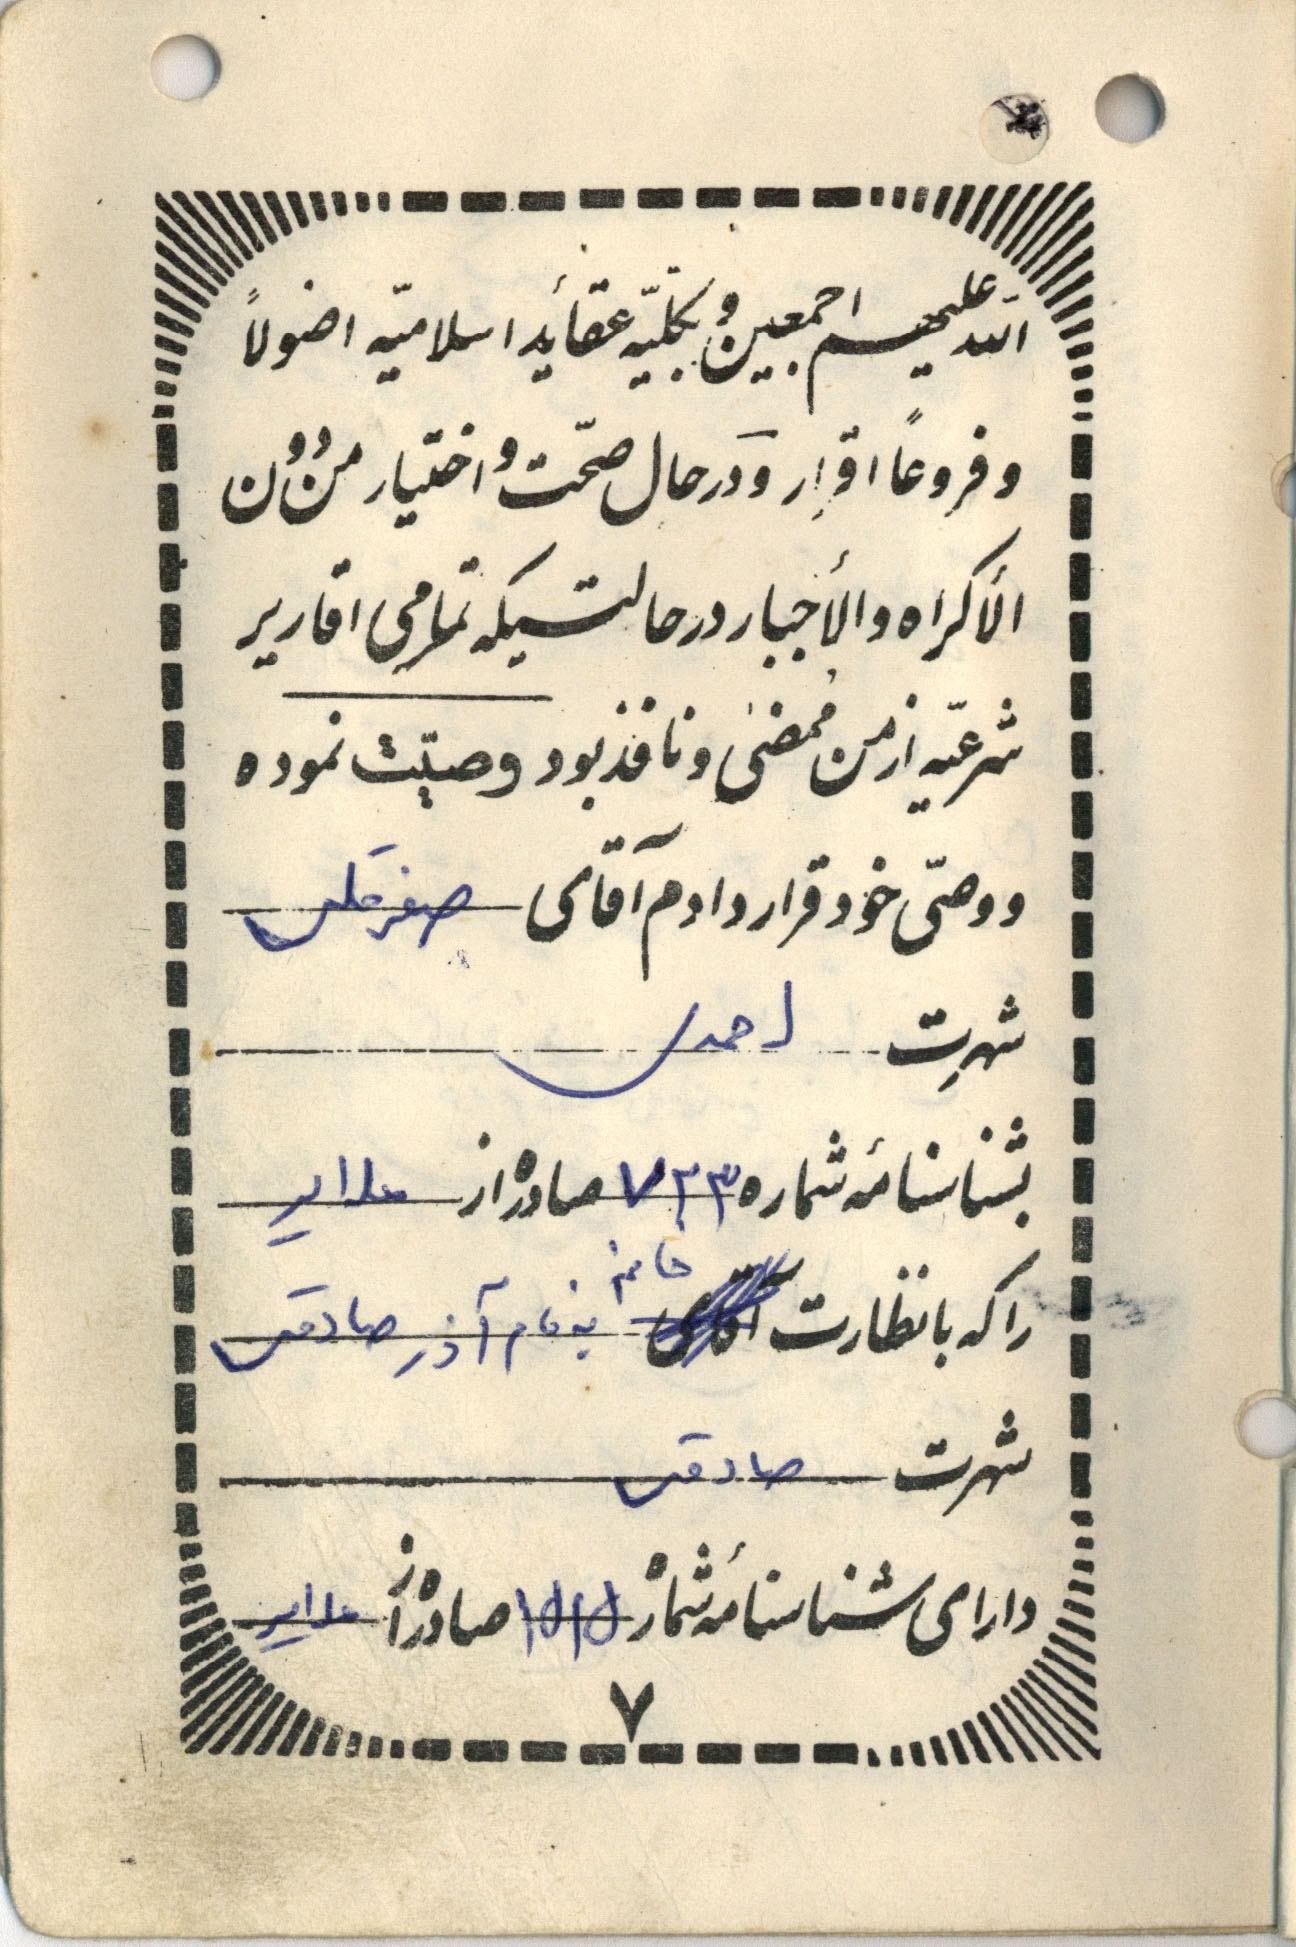 الله علیهم اجمعین و بکلیّه عقائد اسلامیّه اصولاً
و فروعاً اقرار و در حال صحّت و اختیار من دون
الأکراه والأجبار در حالتیکه تمامی اقاریر
شرعیّه از من مُمضیٰ و نافذ بود وصیّت نموده
و وصّی خود قرار دادم آقای صفرقلی
شهرت احمدی
بشناسنامهٔ شماره ۷۳۳ صادره از ملایر
را که با نظارت آقای خانم به نام آذر صادقی
شهرت صادقی
دارای شناسنامهٔ شماره ۱۵۱۵ صادره از ملایر
۷